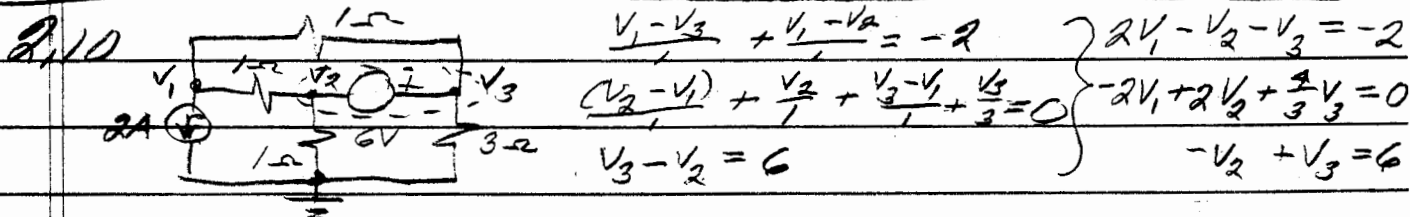 2.10
1Ω
V₁ 1Ω V₂ + V₃
2A
6V
1Ω
3Ω
(V₁-V₃)/1 + (V₁-V₂)/1 = -2
(V₂-V₁)/1 + V₂/1 + (V₃-V₁)/1 + V₃/3 = 0
V₃ - V₂ = 6
2V₁ - V₂ - V₃ = -2
-2V₁ + 2V₂ + 4/3 V₃ = 0
-V₂ + V₃ = 6